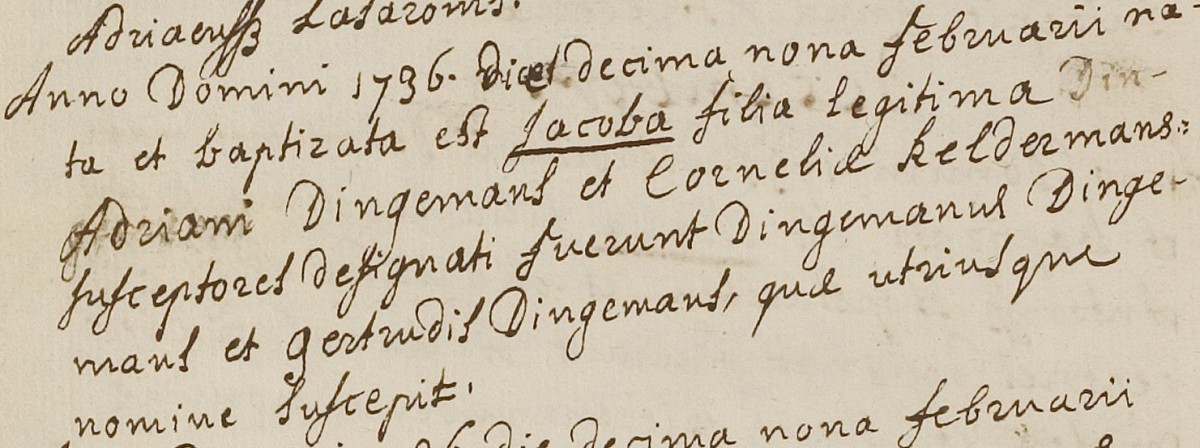 Adriaenssz Lasaroms.
Anno Domini 1736. die decima nona februarii na-
ta et baptizata est Jacoba filia legitima Din-
Adriani Dingemans et Corneliæ Keldermans:
susceptores designati fuerunt Dingemanus Dinge-
mans et gertrudis Dingemans, quæ utriusque
nomine suscepit.
die decima nona februarii